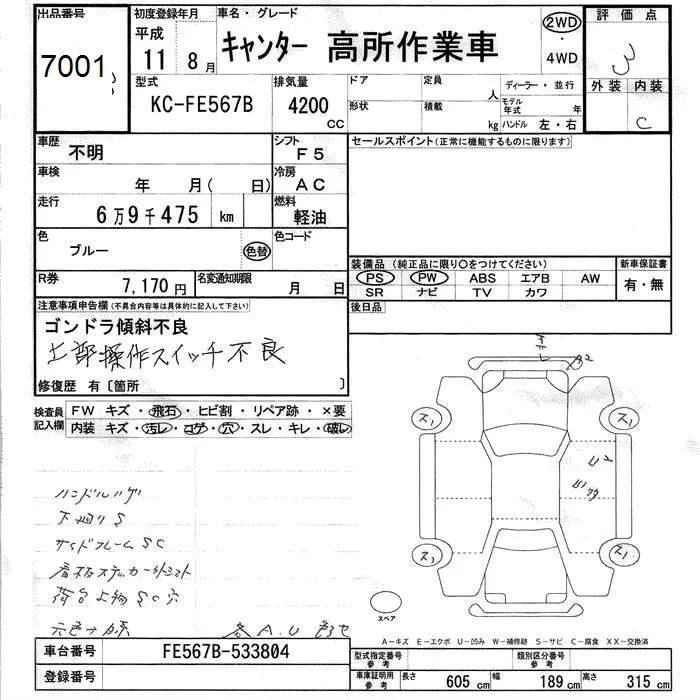 出品番号
7001
初度登録年月
平成
11 8月
車名・グレード
キャンター 高所作業車
2WD
・
4WD
評価点
3
外装 内装
C
型式
KC-FE567B
排気量
4200
CC
ドア
形状
定員
人
積載
kg
ディーラー・並行
モデル
年式 年
ハンドル 左・右
車歴
不明
シフト
F5
セールスポイント(正常に機能するものに限ります)
車検
年 月( 日)
冷房
AC
走行
6万9千475 km
燃料
軽油
色
ブルー
色替
色コード
R券
7,170円
名変通知期限
月 日
装備品(純正品に限り○をつけてください)
PS PW ABS エアB AW
SR ナビ TV カワ
新車保証書
有・無
後日品
注意事項申告欄(不具合内容等は具体的に記入して下さい)
ゴンドラ傾斜不良
上部操作スイッチ不良
修復歴 有〔箇所 〕
検査員
記入欄
FW キズ・飛石・ヒビ割・リペア跡・×要
内装 キズ・汚レ・コゲ・穴・スレ・キレ・破レ
ハンドルハゲ
下廻りS
サイドフレームSC
看板ステッカー
荷台上物SC穴
各A.U
ス1
ス1
ス1
ス1
スペア
A-キズ E-エクボ U-凹み W-補修跡 S-サビ C-腐食 XX-交換済
車台番号
FE567B-533804
登録番号
型式指定番号
参考
類別区分番号
参考
車庫証明用
参考
長さ 605 cm 幅 189 cm 高さ 315 cm